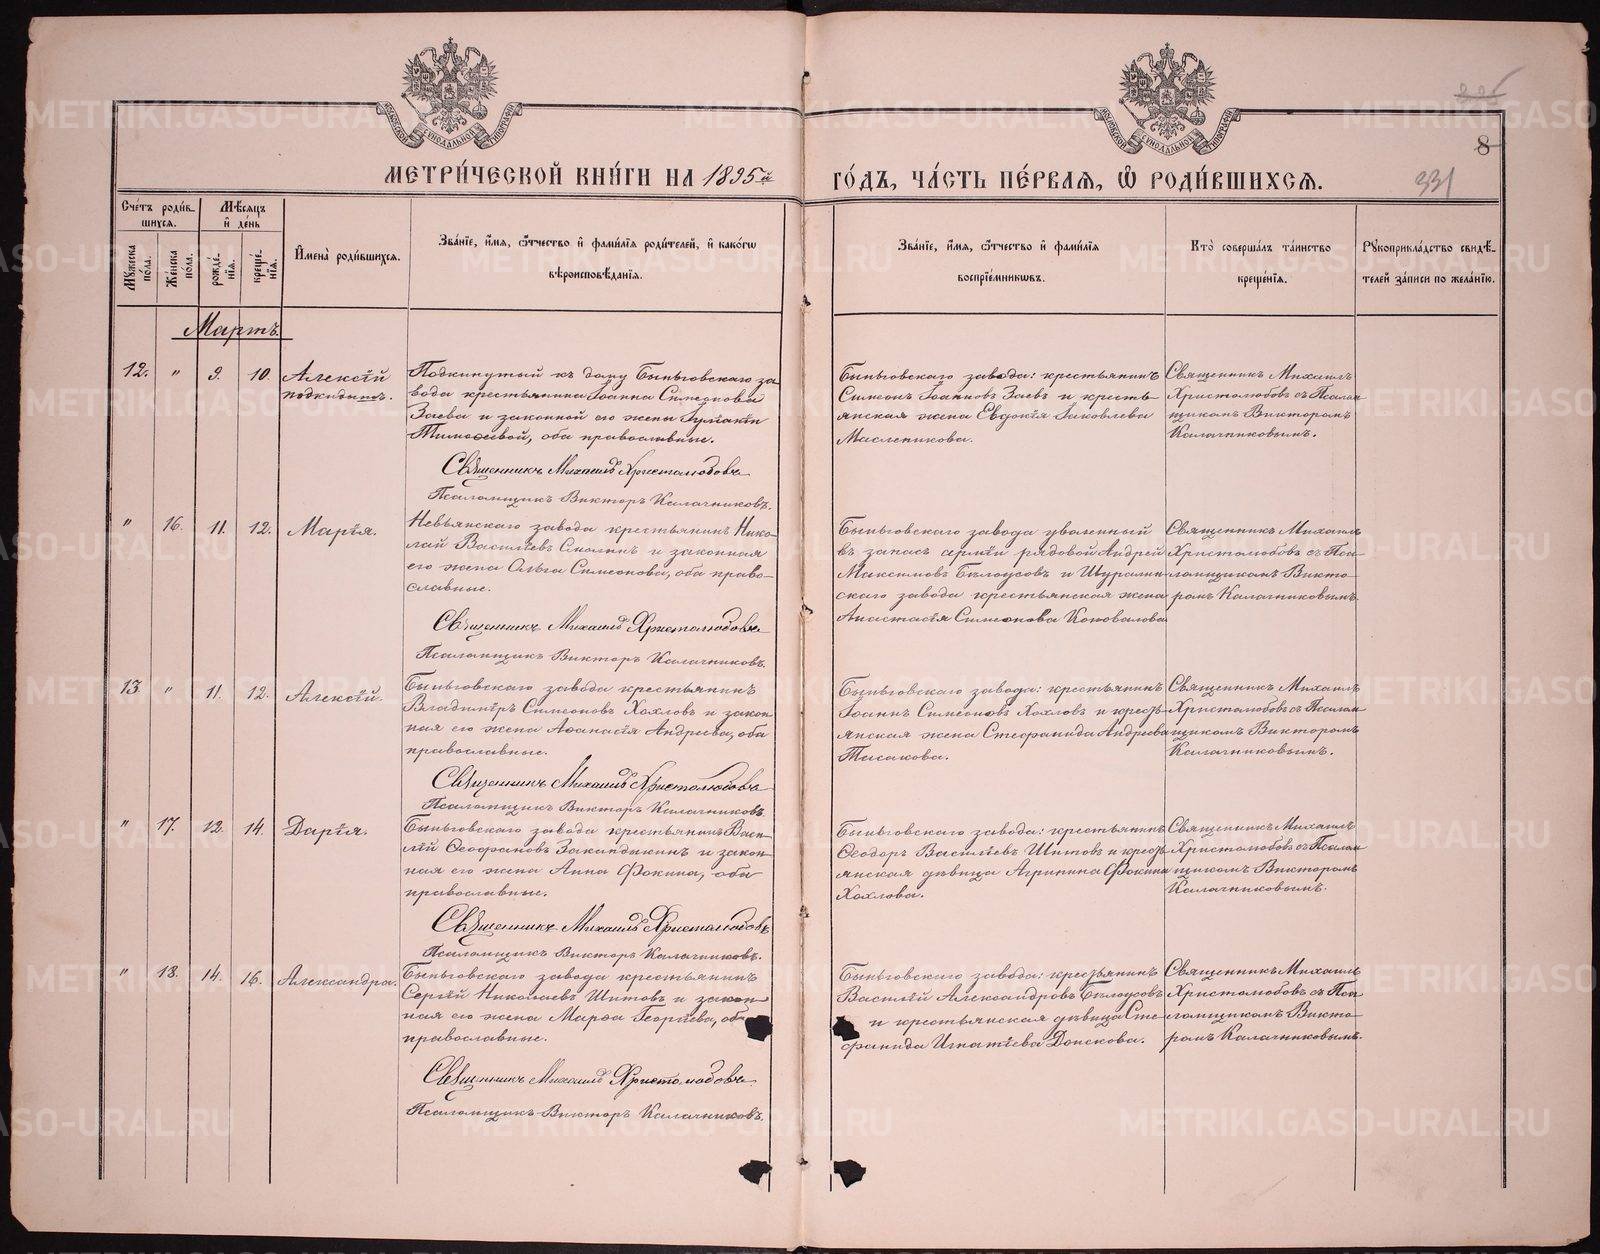 МЕТРИ́ЧЕСКОЙ КНИ́ГИ НА 1895й ГО́ДЪ, ЧА́СТЬ ПЕ́РВАѦ, Ѽ РОДИ́ВШИХСѦ.
8
331
Сче́тъ роди́в-
шихсѧ.
Мѣ́сѧцъ
и҆ де́нь
Мꙋ́жеска
по́ла.
Же́нска
по́ла.
рожде́-
нїѧ.
креще́-
нїѧ.
И҆мена̀ роди́вшихсѧ.
Зва́нїе, и҆́мѧ, ѻ҆́тчество и҆ фами́лїѧ роди́телей, и҆ како́гѡ
вѣроисповѣ́данїѧ.
Зва́нїе, и҆́мѧ, ѻ҆́тчество и҆ фами́лїѧ
воспрїе́мникѡвъ.
Кто̀ соверша́лъ та́инство
креще́нїѧ.
Рꙋкоприкла́дство свидѣ́-
телей за́писи по жела́нїю.
Мартъ.
12. " 9. 10.
Алексѣй
подкидышъ.
Подкинутый къ дому Быньговскаго за
вода крестьянина Іоанна Симеонова
Заева и законной его жены
Тимоѳеевой, оба православные.
Священникъ Михаилъ Христолюбовъ
Псаломщикъ Викторъ Калачниковъ.
Быньговскаго завода: крестьянинъ
Симеонъ Іоанновъ Заевъ и кресть-
янская жена Евдокія Іаковлева
Масленикова.
Священникъ Михаилъ
Христолюбовъ съ Псалом
щикомъ Викторомъ
Калачниковымъ.
" 16. 11. 12.
Марія.
Невьянскаго завода крестьянинъ Нико-
лай Васильевъ Смолинъ и законная
его жена Ольга Симеонова, оба право-
славные.
Священникъ Михаилъ Христолюбовъ
Псаломщикъ Викторъ Калачниковъ.
Быньговскаго завода уволенный
въ запасъ арміи рядовой Андрей
Максимовъ Бѣлоусовъ и Шуралин-
скаго завода крестьянская жена
Анастасія Симеонова Коновалова
Священникъ Михаилъ
Христолюбовъ съ Пса-
ломщикомъ Викто-
ромъ Калачниковымъ.
13. " 11. 12.
Алексѣй.
Быньговскаго завода крестьянинъ
Владиміръ Симеоновъ Хохловъ и закон
ная его жена Аѳанасія Андреева, оба
православные.
Священникъ Михаилъ Христолюбовъ
Псаломщикъ Викторъ Калачниковъ.
Быньговскаго завода: крестьянинъ
Іоаннъ Симеоновъ Хохловъ и кресть-
янская жена Стефанида Андреева
Тасакова.
Священникъ Михаилъ
Христолюбовъ съ Псалом
щикомъ Викторомъ
Калачниковымъ.
" 17. 12. 14.
Дарія.
Быньговскаго завода крестьянинъ Васи-
лій Ѳеофановъ Закандыкинъ и закон
ная его жена Анна Фокина, оба
православные.
Священникъ Михаилъ Христолюбовъ
Псаломщикъ Викторъ Калачниковъ.
Быньговскаго завода: крестьянинъ
Ѳеодоръ Васильевъ Шитовъ и кресть
янская дѣвица Агрипина Фокина
Хохлова.
Священникъ Михаилъ
Христолюбовъ съ Псалом
щикомъ Викторомъ
Калачниковымъ.
" 18. 14. 16.
Александра.
Быньговскаго завода крестьянинъ
Сергій Николаевъ Шитовъ и закон
ная его жена Марѳа Георгіева, оба
православные.
Священникъ Михаилъ Христолюбовъ
Псаломщикъ Викторъ Калачниковъ.
Быньговскаго завода: крестьянинъ
Василій Александровъ Бѣлоусовъ
и крестьянская дѣвица Сте-
фанида Игнатіева Донскова.
Священникъ Михаилъ
Христолюбовъ съ Пса
ломщикомъ Викто-
ромъ Калачниковымъ.